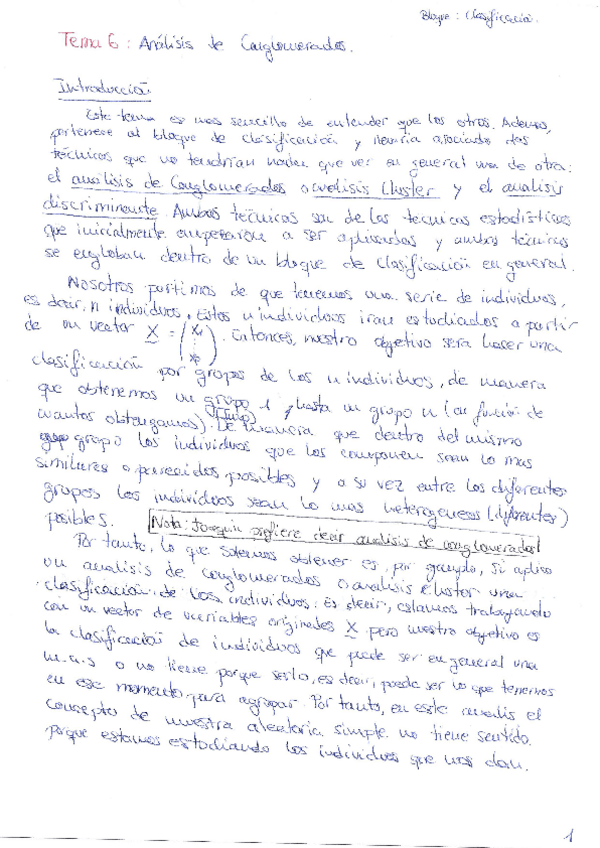 Bloque: Clasificación.
Tema 6: Análisis de Conglomerados.
Introducción
Este tema es mas sencillo de entender que los otros. Ademas,
pertenece al bloque de clasificación y asociado dos
técnicas que no tendrían nada que ver en general una de otra:
el analisis de Conglomerados o analisis Cluster y el analisis
discriminante. Ambas técnicas son de las técnicas estadísticas
que inicialmente empezaron a ser aplicadas y ambas técnicas
se engloban dentro de un bloque de clasificación en general.
Nosotros partimos de que tenemos una serie de individuos,
es decir, n individuos. Estos n individuos iran estudiados a partir
de un vector X = (X1 ⋮ Xp). Entonces, nuestro objetivo será hacer una
clasificación por grupos de los n individuos, de manera
que obtenemos un grupo 1 y hasta un grupo n (en función de
cuantos obtengamos). De manera que dentro del mismo
grupo los individuos que los componen sean lo mas
similares o parecidos posibles y a su vez entre los diferentes
grupos los individuos sean lo mas heterogeneos (diferentes)
posibles. Nota: Joaquín prefiere decir analisis de conglomerados
Por tanto, lo que solemos obtener es, por ejemplo, si aplico
un analisis de conglomerados o analisis cluster una
clasificación de los individuos. Es decir, estamos trabajando
con un vector de variables originales X pero nuestro objetivo es
la clasificación de individuos que puede ser en general una
m.a.s o no tiene porque serlo, es decir, puede ser lo que tenemos
en ese momento para agrupar. Por tanto, en este analisis el
concepto de muestra aleatoria simple no tiene sentido.
Porque estamos estudiando los individuos que nos dan.
1